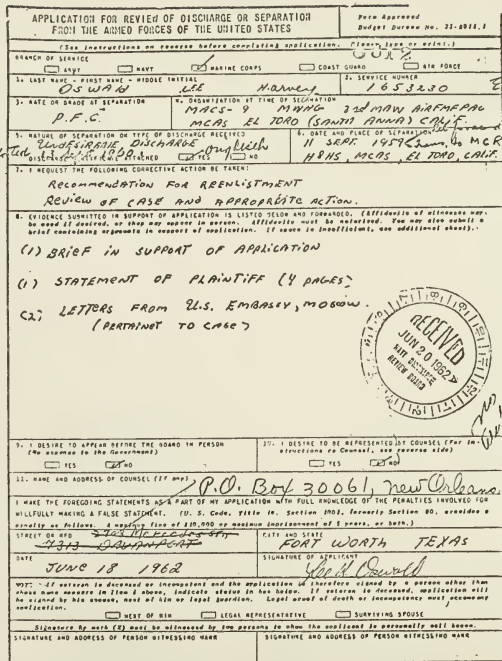 APPLICATION FOR REVIEW OF DISCHARGE OR SEPARATION
FROM THE ARMED FORCES OF THE UNITED STATES
Form Approved
Budget Bureau No.
(See instructions on reverse before completing application. Please type or print.)
BRANCH OF SERVICE
ARMY NAVY MARINE CORPS COAST GUARD AIR FORCE
1. LAST NAME - FIRST NAME - MIDDLE INITIAL
OSWALD LEE Harvey
2. SERVICE NUMBER
1653230
3. RATE OR GRADE AT SEPARATION
P.F.C.
4. ORGANIZATION AT TIME OF SEPARATION
MACS-9 MWHG 3rd MAW AIRFMFPAC
MCAS EL TORO (SANTA ANNA) CALIF.
5. NATURE OF SEPARATION OR TYPE OF DISCHARGE RECEIVED
UNDESIRABLE, DISCHARGE
YES NO
6. DATE AND PLACE OF SEPARATION
11 SEPT. 1959 to MCR
H&HS, MCAS, EL TORO, CALIF.
7. I REQUEST THE FOLLOWING CORRECTIVE ACTION BE TAKEN:
RECOMMENDATION FOR REENLISTMENT
REVIEW OF CASE AND APPROPRIATE ACTION.
8. EVIDENCE SUBMITTED IN SUPPORT OF APPLICATION IS LISTED BELOW AND FORWARDED. (Affidavits of witnesses may
be used if desired, or they may appear in person. Affidavits must be notarized. You may also submit a
brief containing arguments in support of application. If space is insufficient, use additional sheet).
(1) BRIEF IN SUPPORT OF APPLICATION
(1) STATEMENT OF PLAINTIFF (4 PAGES)
(2) LETTERS FROM U.S. EMBASSY, MOSCOW.
(PERTAINOT TO CASE)
RECEIVED
JUN 20 1962
NAVY DISCHARGE
REVIEW BOARD
9. I DESIRE TO APPEAR BEFORE THE BOARD IN PERSON
(No expense to the Government)
YES NO
10. I DESIRE TO BE REPRESENTED BY COUNSEL (For in-
structions to Counsel, see reverse side)
YES NO
11. NAME AND ADDRESS OF COUNSEL (If any)
P.O. Box 30061, New Orleans,
I MAKE THE FOREGOING STATEMENTS AS A PART OF MY APPLICATION WITH FULL KNOWLEDGE OF THE PENALTIES INVOLVED FOR
WILLFULLY MAKING A FALSE STATEMENT. (U. S. Code, Title 18, Section 1001, formerly Section 80, provides a
penalty as follows: A maximum fine of $10,000 or maximum imprisonment of 5 years, or both.)
STREET OR RFD
7313 DAVENPORT
CITY AND STATE
FORT WORTH TEXAS
DATE
JUNE 18 1962
SIGNATURE OF APPLICANT
Lee H. Oswald
NOTE: - If veteran is deceased or incompetent and the application is therefore signed by a person other than
whose name appears in Item 1 above, indicate status in box below. If veteran is deceased, application will
be signed by his spouse, next of kin or legal guardian. Legal proof of death or incompetency must accompany
application.
NEXT OF KIN LEGAL REPRESENTATIVE SURVIVING SPOUSE
Signature by mark (X) must be witnessed by two persons to whom the applicant is personally well known.
SIGNATURE AND ADDRESS OF PERSON WITNESSING MARK
SIGNATURE AND ADDRESS OF PERSON WITNESSING MARK